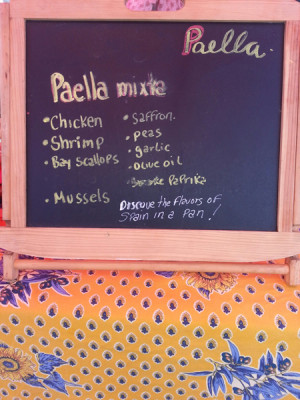 Paella.
Paella mixta
• Chicken
• Shrimp
• Bay Scallops
• Mussels
• Saffron.
• peas
• garlic
• olive oil
• Paprika
Discove the flavors of
Spain in a pan!